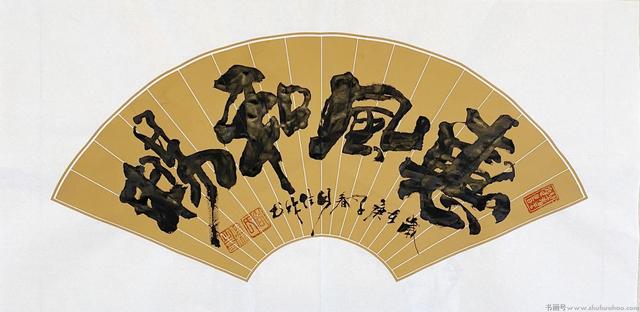 惠風和暢
歲在庚子春
书画号www.shuhuahao.com